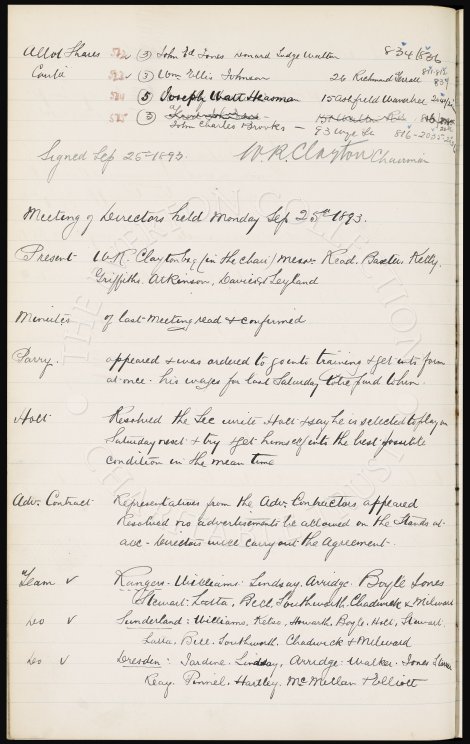 Allot Shares 522 ✓ (3) John Ed Jones Leonard Lodge Walton 834/836
Contd 523 ✓ (3) Wm. Ellis Johnson 26 Richmond Terrace 839
524 (5) Joseph Watt Hearman 15 Ashfield Wavertree
525 (3)
John Charles Brooks — 93 Wye St 816-
Signed Sep 25-1893. W. R. Clayton Chairman
Meeting of Directors held Monday Sep 25th 1893.
Present W.R. Clayton Esq (in the chair) Messrs Read, Baxter, Kelly,
Griffiths, Atkinson, Davies & Leyland
Minutes of last meeting read & confirmed
Parry. appeared & was ordered to go into training & get into form
at once. his wages for last Saturday to be paid to him.
Holt Resolved the Sec write Holt & say he is selected to play on
Saturday next & try & get himself into the best possible
condition in the mean time
Adv. Contract Representatives from the Adv. Contractors appeared
Resolved no advertisements be allowed on the Stands at
all - Directors will carry out the Agreement.
"Team ✓ Rangers - Williams. Lindsay. Arridge. Boyle Jones
Stewart. Latta, Bell. Southworth. Chadwick & Milward
Do ✓ Sunderland: Williams, Kelso, Howarth, Boyle, Holt, Stewart,
Latta, Bell. Southworth, Chadwick & Milward
Do ✓ Dresden: Jardine. Lindsay, Arridge. Walker. Jones
Reay. Pinnel. Hartley. McMillan & Elliott
THE EVERTON COLLECTION